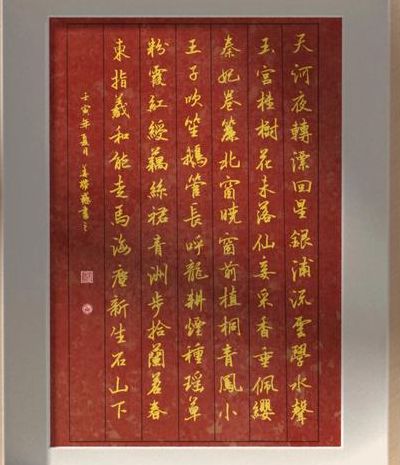 天河夜轉漂回星銀浦流雲學水聲
玉宮桂樹花未落仙妾采香垂佩纓
秦妃卷簾北窗曉窗前植桐青鳳小
王子吹笙鵝管長呼龍耕煙種瑤草
粉霞紅綬藕絲裙青洲步拾蘭苕春
東指羲和能走馬海塵新生石山下
壬寅年夏月 書之